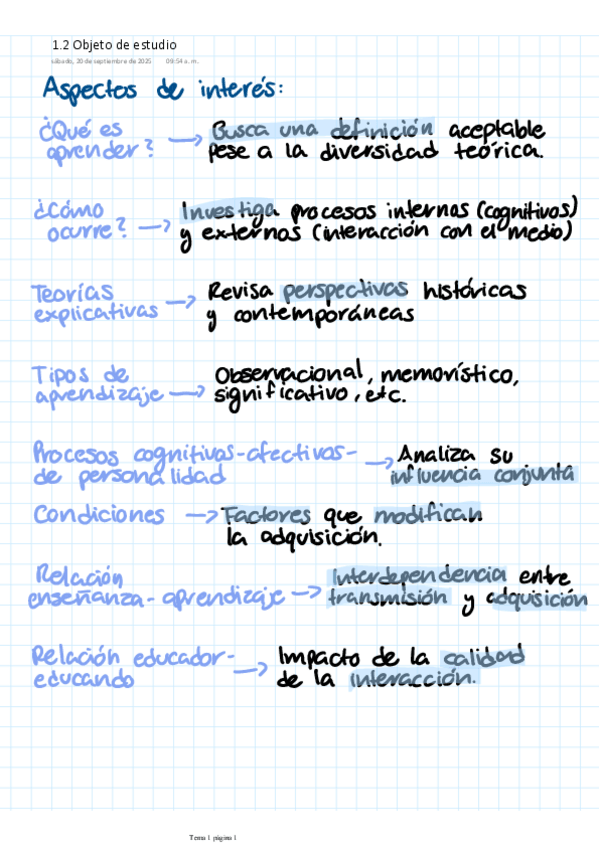 1.2 Objeto de estudio
sábado, 20 de septiembre de 2025 09:54 a. m.
Aspectos de interés:
¿Qué es aprender? → Busca una definición aceptable
pese a la diversidad teórica.
¿Cómo ocurre? → Investiga procesos internos (cognitivos)
y externos (interacción con el medio)
Teorías explicativas → Revisa perspectivas históricas
y contemporáneas
Tipos de aprendizaje → Observacional, memorístico,
significativo, etc.
Procesos cognitivos-afectivos-
de personalidad → Analiza su
influencia conjunta
Condiciones → Factores que modifican
la adquisición.
Relación
enseñanza-aprendizaje → Interdependencia entre
transmisión y adquisición
Relación educador-
educando → Impacto de la calidad
de la interacción.
Tema 1 página 1